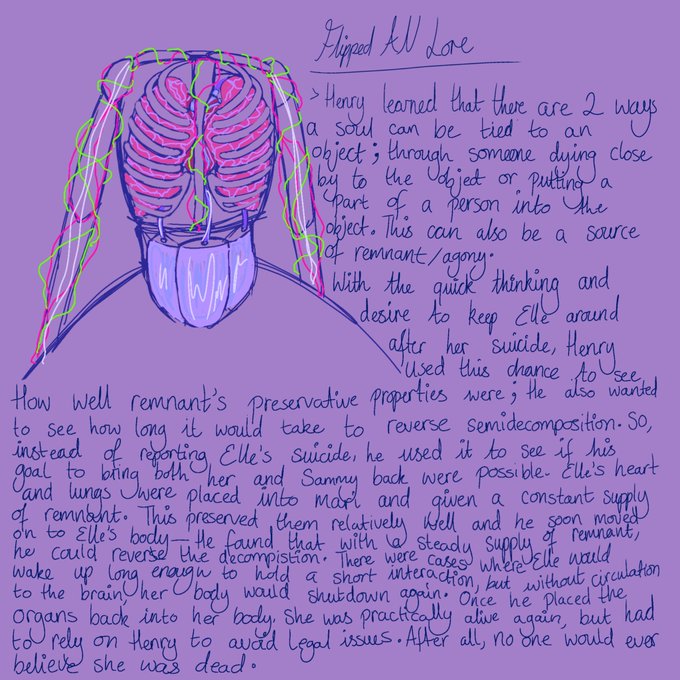 Flipped AU Lore
> Henry learned that there are 2 ways
a soul can be tied to an
object; through someone dying close
by to the object or putting a
part of a person into the
object. This can also be a source
of remnant/agony.
With the quick thinking and
desire to keep Elle around
after her suicide, Henry
used this chance to see
How well remnant's preservative properties were; He also wanted
to see how long it would take to reverse semidecomposition. So,
instead of reporting Elle's suicide, he used it to see if his
goal to bring both her and Sammy back were possible. Elle's heart
and lungs were placed into and given a constant supply
of remnant. This preserved them relatively well and he soon moved
on to Elle's body— He found that with a steady supply of remnant,
he could reverse the decompistion. There were cases where Elle would
wake up long enough to hold a short interaction, but without circulation
to the brain, her body would shutdown again. Once he placed the
organs back into her body, She was practically alive again, but had
to rely on Henry to avoid legal issues. After all, no one would ever
believe she was dead.